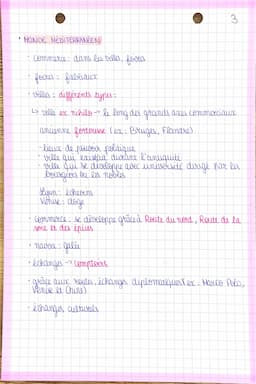 3
• MONDE MÉDITERRANÉEN
- commerce : dans les villes, foires
- foires : fabliaux
- villes : différents types :
↳ ville ex nihilo → le long des grands axes commerciaux
ancienne forteresse (ex : Bruges, Flandre)
- lieux de pouvoir politique
- ville qui existait durant l'antiquité
- ville qui se développe avec université dirigé par la bourgeoisie ou les nobles
Lyon : échevins
Venise : doge
- commerce : se développe grâce à Route du nord, Route de la soie et des épices
- navire : galée
- échanges → comptoirs
- grâce aux routes, échanges diplomatiques (ex : Marco Polo, Venise et Chine)
- échanges culturels